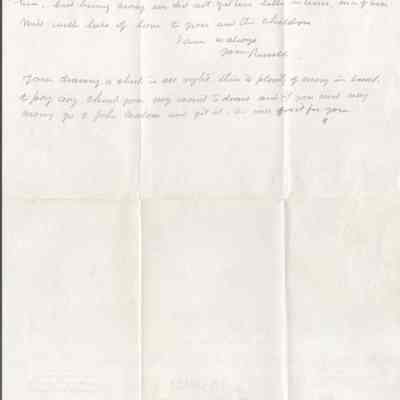 him, but being away we did not get
Well with lots of love to you and the children
I am as always
Your Russell
Your drawing a check is all right, there is plenty of money in bank
to pay any check you may want to draw and if you need any
money go to John and get it, he will for you